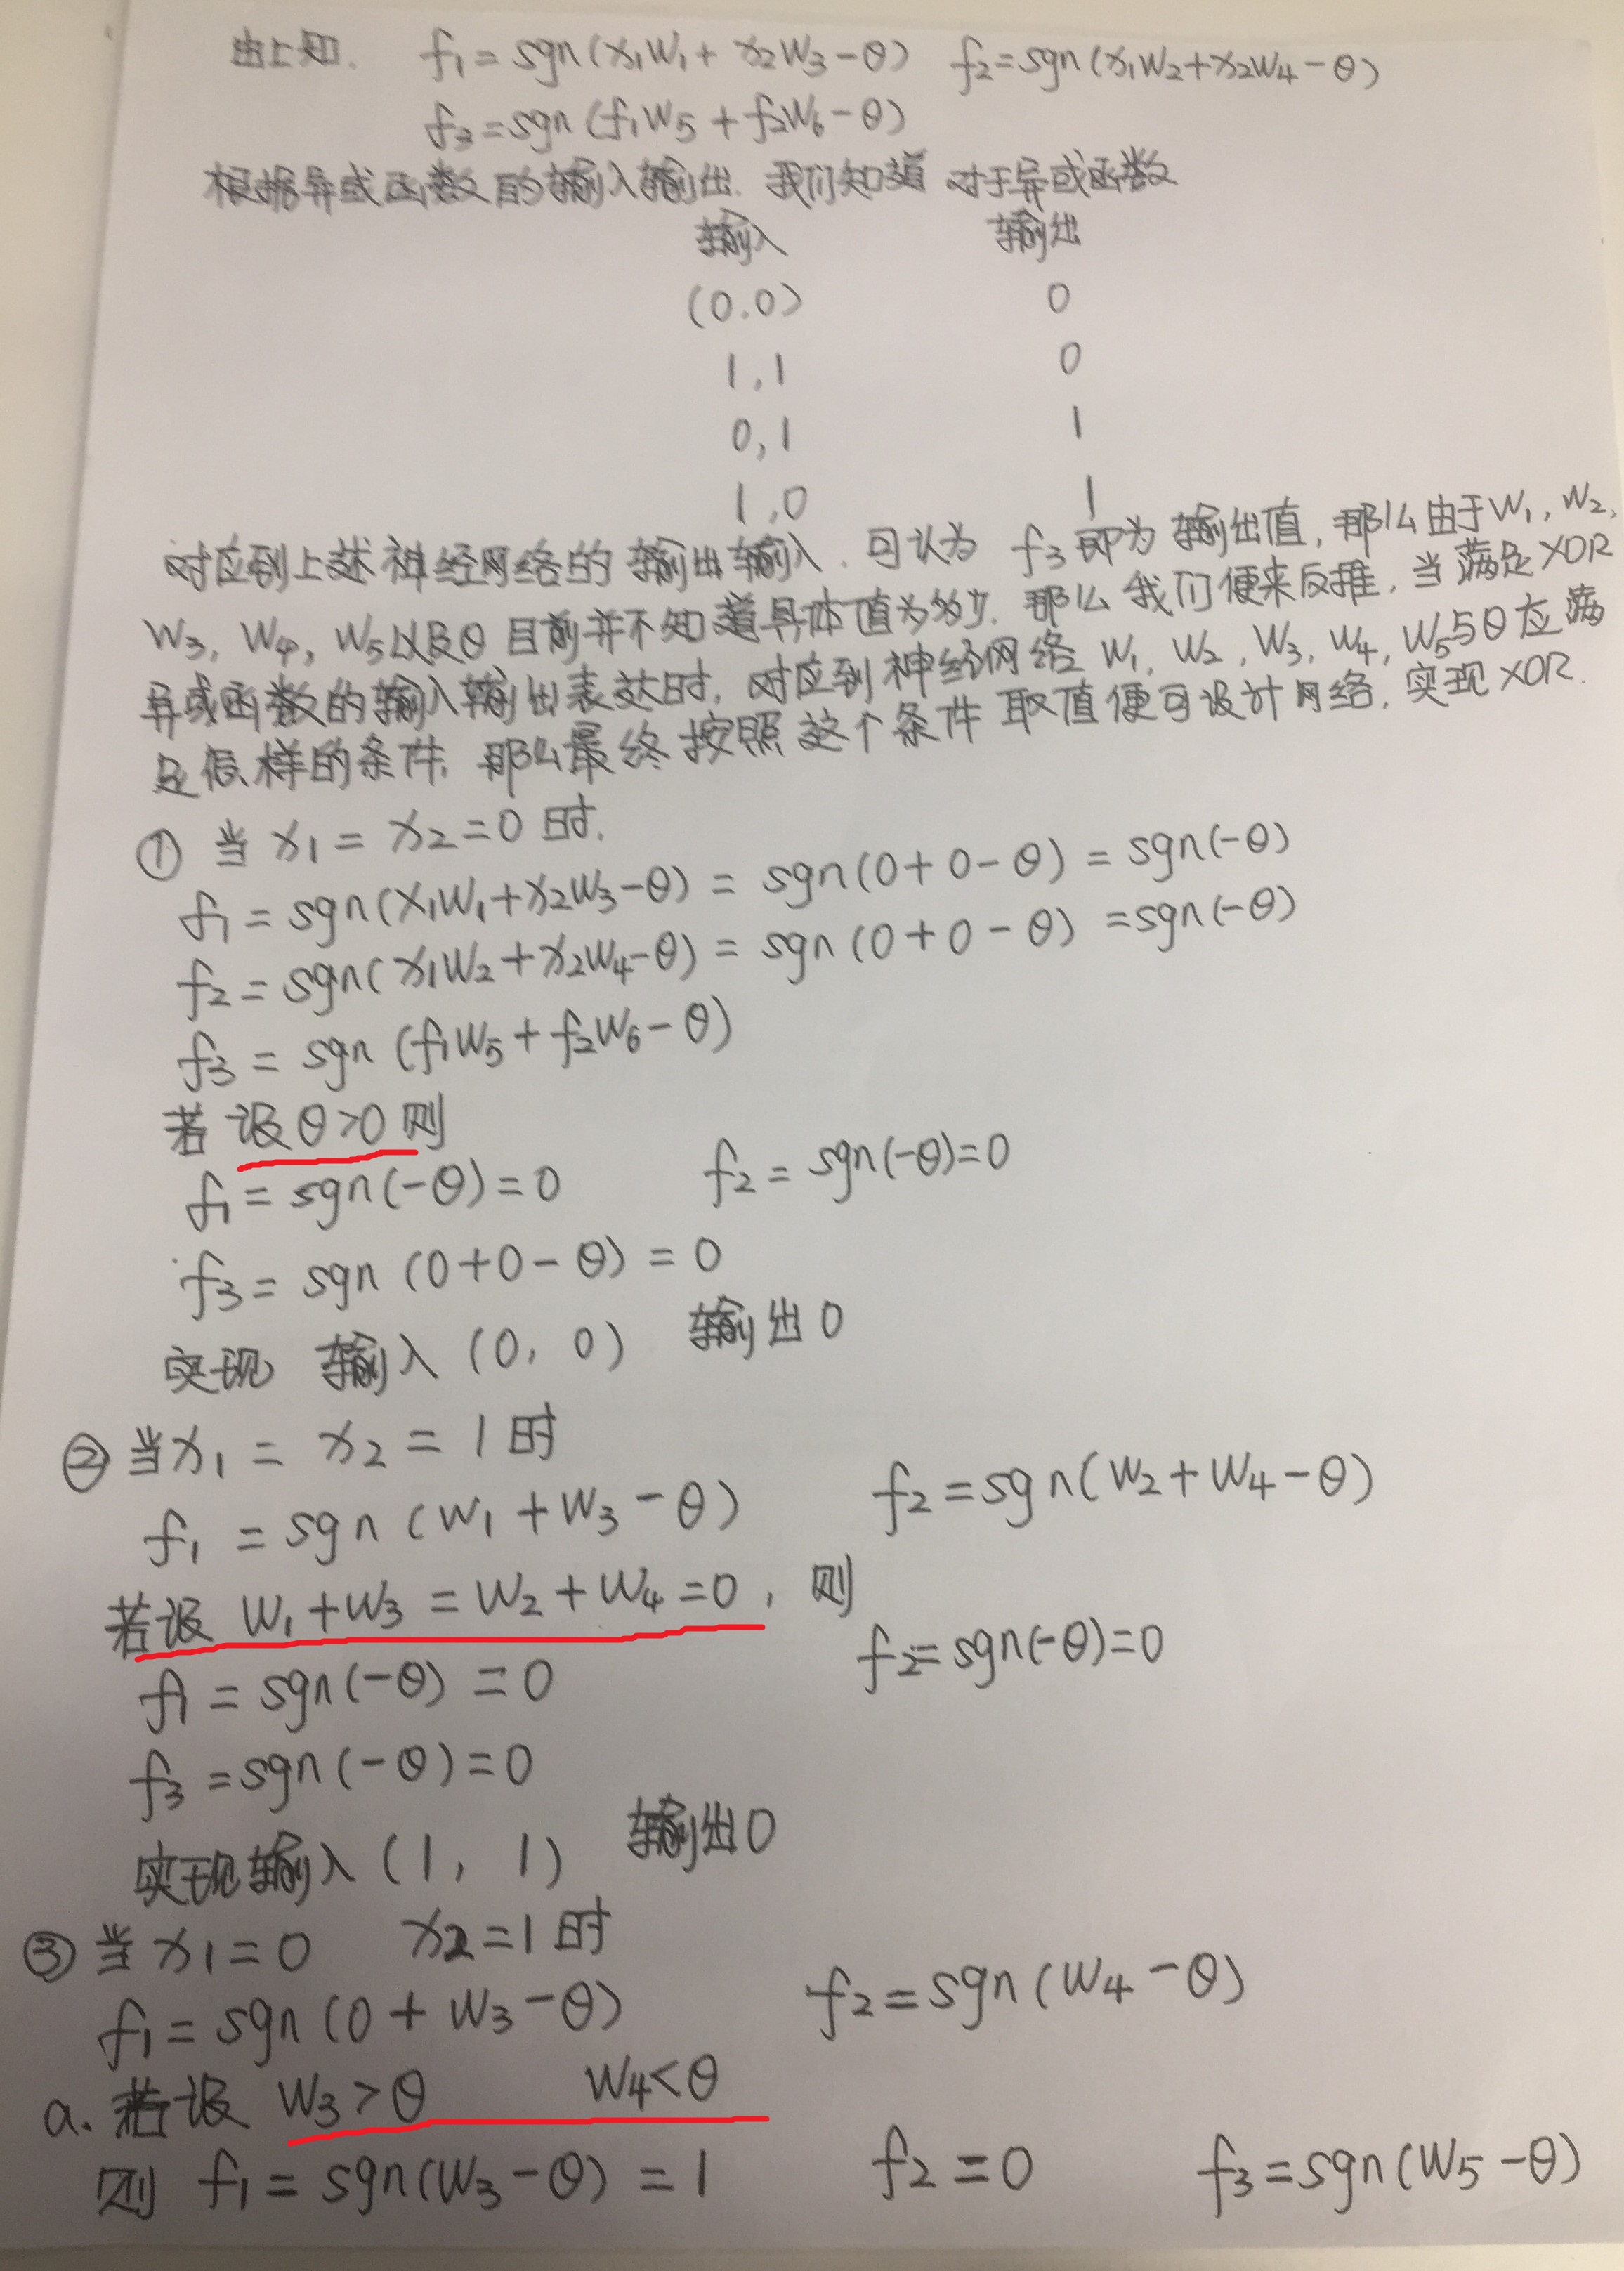 由上知. f1=sgn(x1W1+x2W3-θ) f2=sgn(x1W2+x2W4-θ)
f3=sgn(f1W5+f2W6-θ)
根据异或函数的输入输出. 我们知道 对于异或函数
输入 输出
(0.0) 0
1,1 0
0,1 1
1,0 1
对应到上述神经网络的输出输入. 可认为 f3即为输出值, 那么由于W1, W2,
W3, W4, W5以及θ目前并不知道具体值为多少. 那么我们便来反推, 当满足XOR
异或函数的输入输出表达时, 对应到神经网络 W1, W2, W3, W4, W5与θ应满
足怎样的条件, 那么最终按照这个条件取值便可设计网络, 实现XOR.
① 当x1=x2=0时.
f1=sgn(x1W1+x2W3-θ)=sgn(0+0-θ)=sgn(-θ)
f2=sgn(x1W2+x2W4-θ)=sgn(0+0-θ)=sgn(-θ)
f3=sgn(f1W5+f2W6-θ)
若设θ>0则
f1=sgn(-θ)=0 f2=sgn(-θ)=0
f3=sgn(0+0-θ)=0
实现 输入(0, 0) 输出0
② 当x1=x2=1时
f1=sgn(W1+W3-θ) f2=sgn(W2+W4-θ)
若设 W1+W3=W2+W4=0, 则
f1=sgn(-θ)=0 f2=sgn(-θ)=0
f3=sgn(-θ)=0
实现输入(1, 1) 输出0
③ 当x1=0 x2=1时
f1=sgn(0+W3-θ) f2=sgn(W4-θ)
a. 若设 W3>θ W4<θ
则 f1=sgn(W3-θ)=1 f2=0 f3=sgn(W5-θ)